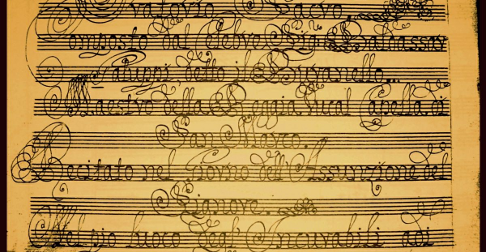 Oratorio Sacro
Composto dal Celebre Sigr Baldassar
Galuppi detto il Buranello...
Maestro della Reggia Ducal Capella di
San Marco.
Recitato nel Giorno dell'Assunzione del
Signore...
Nel pio luoco degl'Incurabili